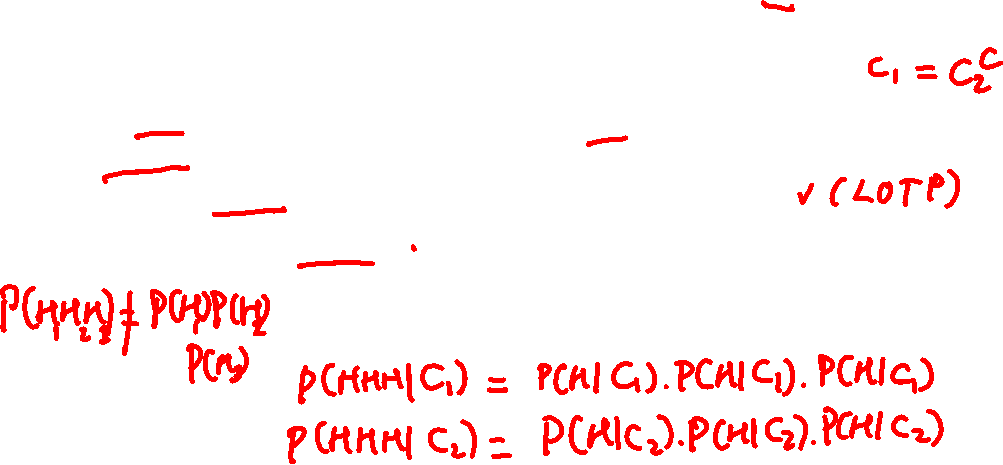 C₁ = C₂ᶜ
✓ (LOTP)
P(H₁H₂H₃) ≠ P(H₁)P(H₂)
P(H₃)
P(HHH|C₁) = P(H|C₁).P(H|C₁).P(H|C₁)
P(HHH|C₂) = P(H|C₂).P(H|C₂).P(H|C₂)